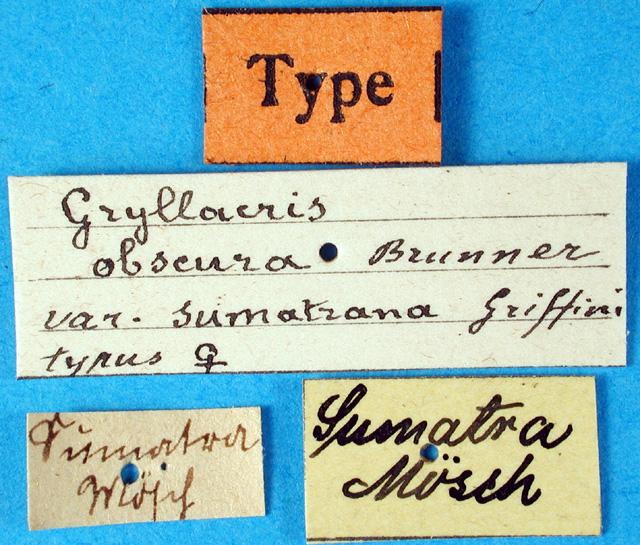 Type
Gryllacris
obscura Brunner
var. sumatrana Griffini
typus ♀
Sumatra
Mösch
Sumatra
Mösch